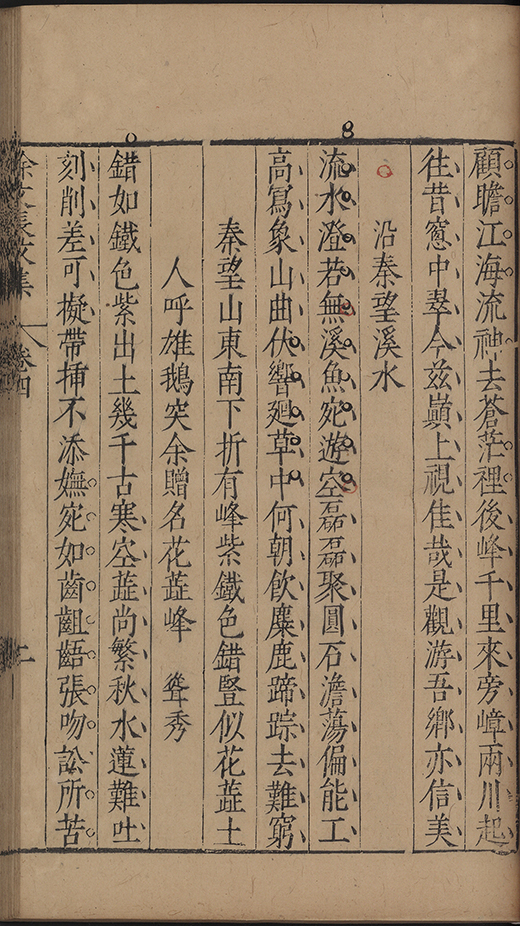 顧瞻江海流神去蒼茫裡後峰千里來旁嶂兩川起
往昔窻中翠今兹巔上視佳哉是觀游吾鄉亦信美
沿秦望溪水
流水澄若無溪魚宛遊空磊磊聚圓石澹蕩偏能工
高寫象山曲伏響廻草中何朝飲麋鹿蹄踪去難窮
秦望山東南下折有峰紫鐵色錯豎似花蕋土
人呼雄鵝突余贈名花蕋峰 聳秀
錯如鐵色紫出土幾千古寒空蕋尚繁秋水蓮難吐
刻削差可擬帶揷不添嫵宛如齒齟齬張吻訟所苦
徐文長文集 卷四 二